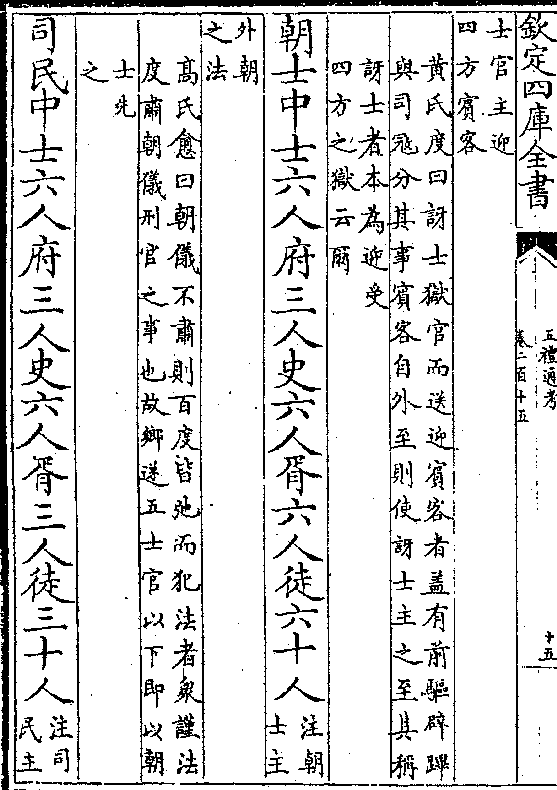 欽定四庫全書
五禮通考
卷二百十五
十五
士官主迎
四方賓客
黄氏度曰訝士獄官而送迎賓客者盖有前驅辟蹕
與司冦分其事賓客自外至則使訝士主之至其稱
訝士者本為迎受
四方之獄云爾
朝士中士六人府三人史六人胥六人徒六十人注朝
士主
外朝
之法
髙氏愈曰朝儀不肅則百度皆弛而犯法者衆謹法
度肅朝儀刑官之事也故鄉遂五士官以下即以朝
士先
之
司民中士六人府三人史六人胥三人徒三十人注司
民主